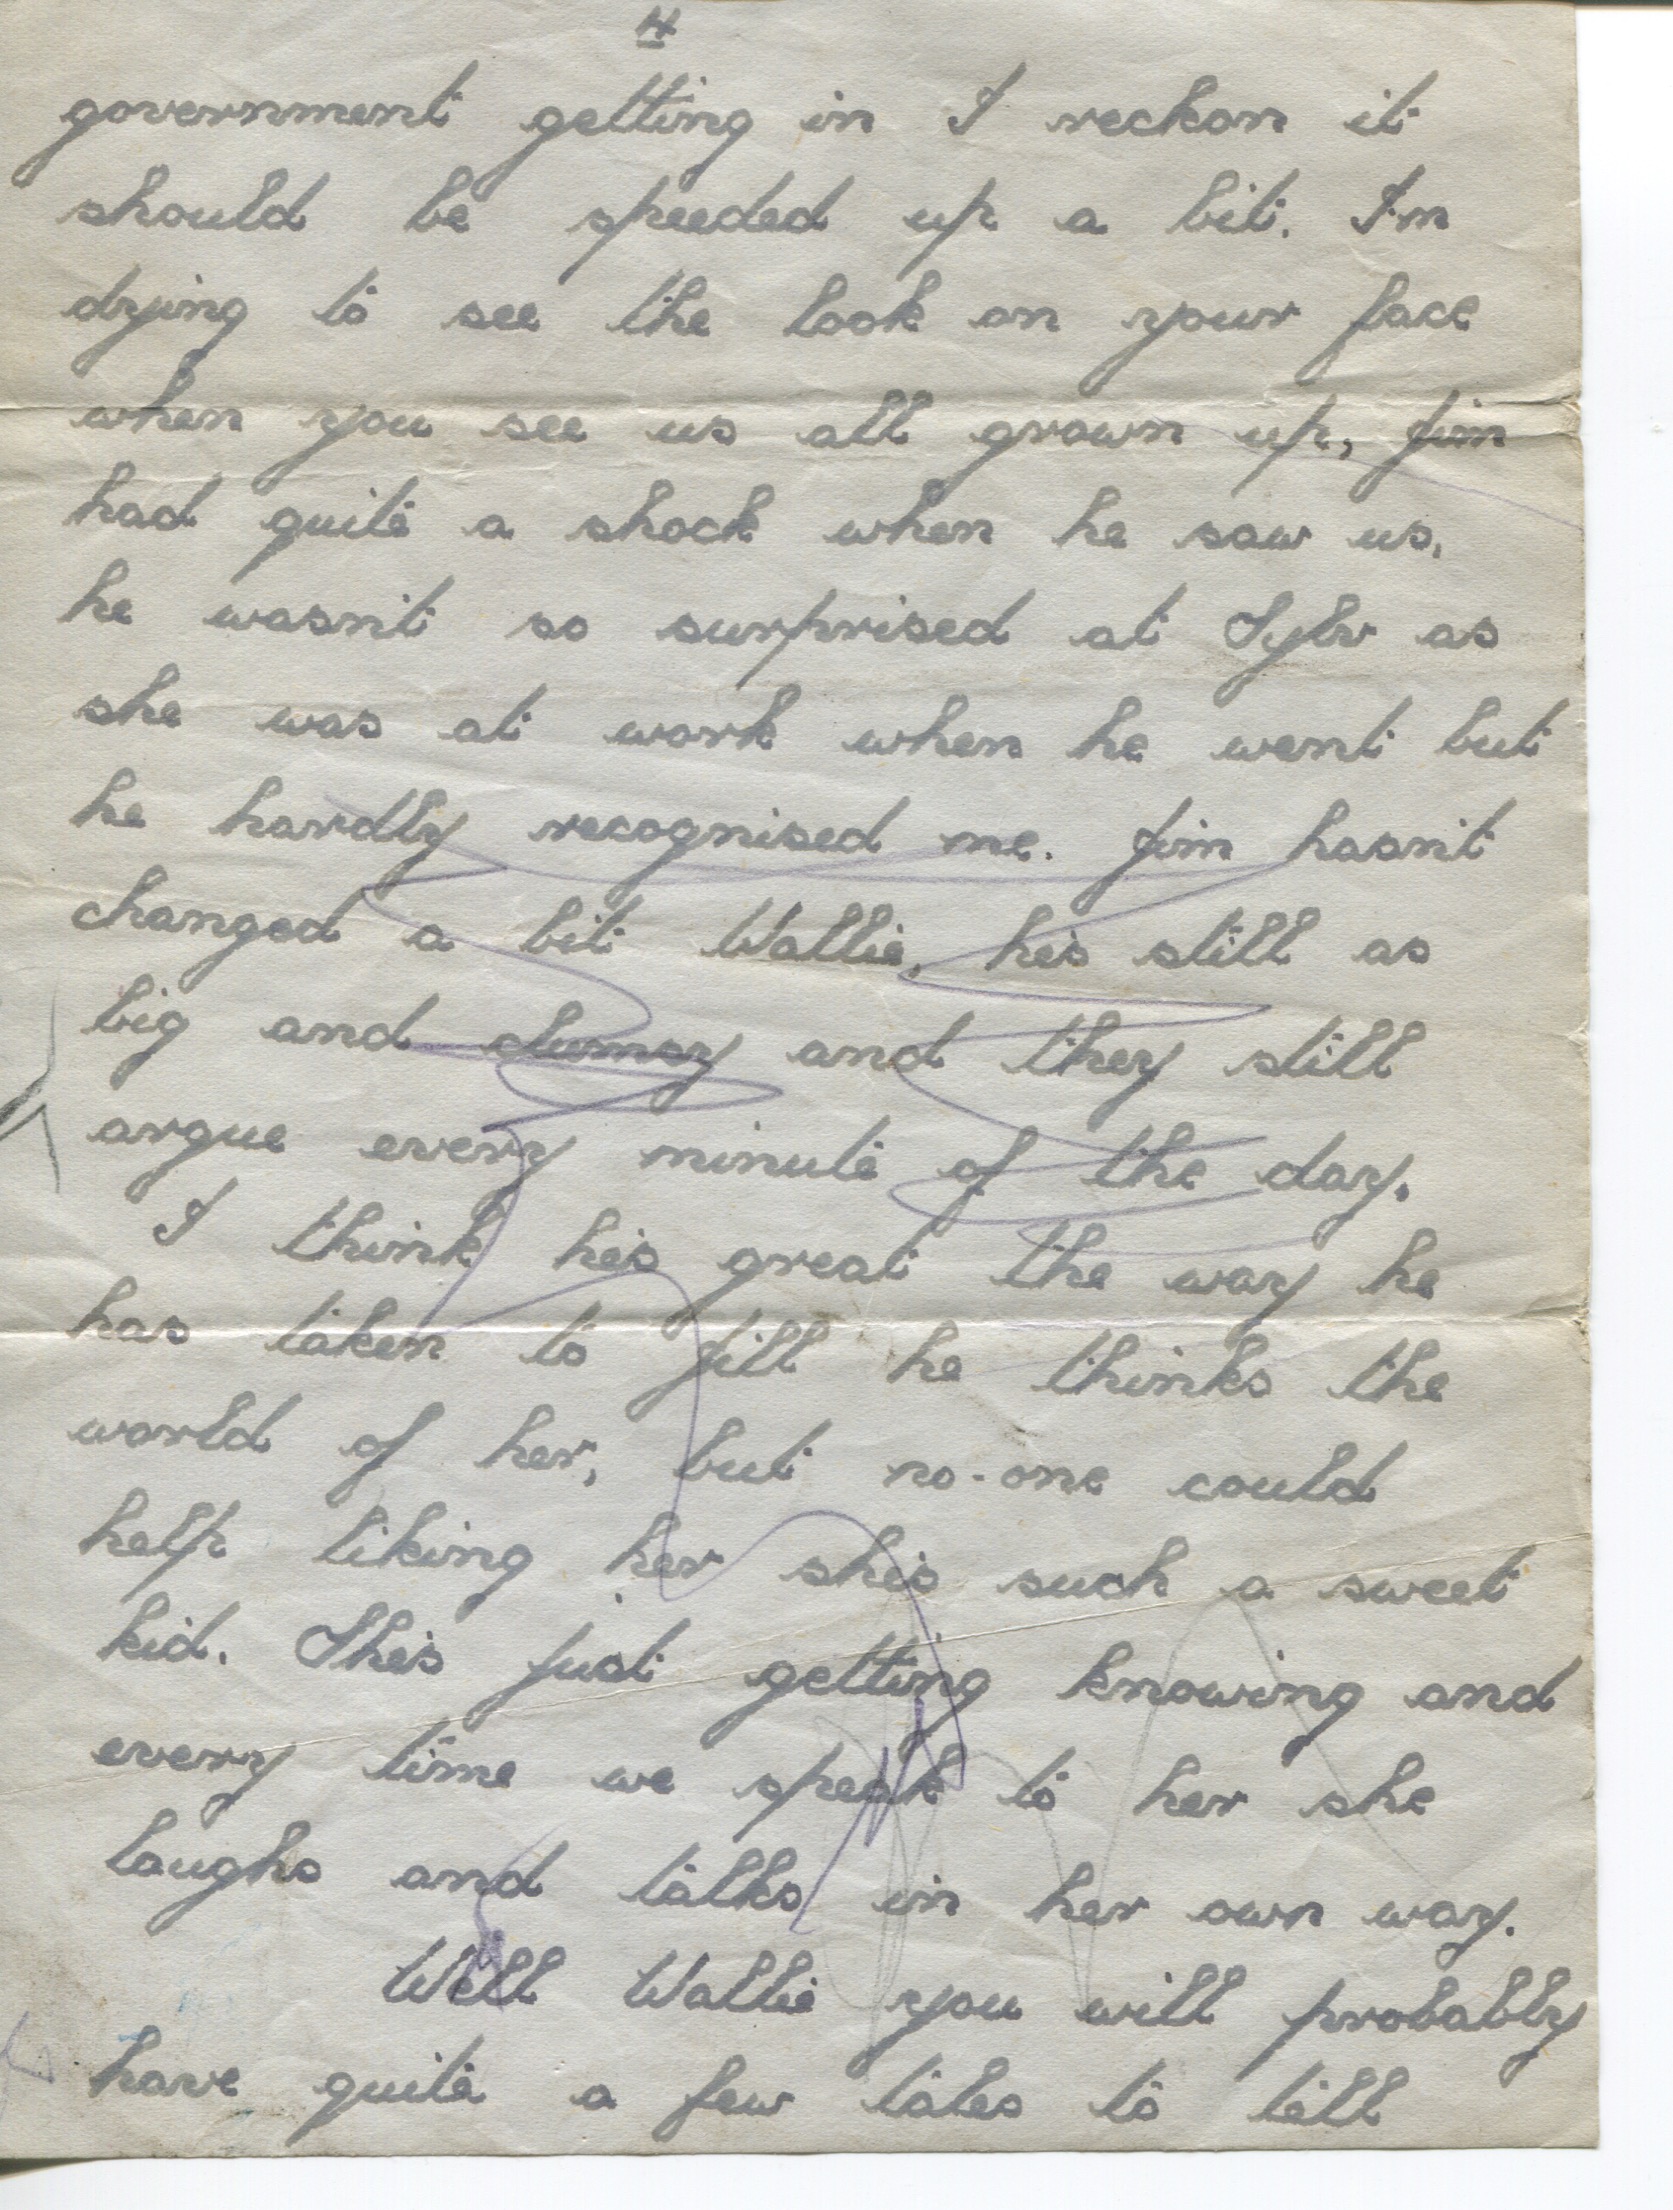 4
government getting in I reckon it
should be speeded up a bit. I'm
dying to see the look on your face
when you see us all grown up, Jim
had quite a shock when he saw us,
he wasn't so surprised at Sylv as
she was at work when he went but
he hardly recognised me. Jim hasn't
changed a bit Wallie, he's still as
big and clumsy and they still
argue every minute of the day.
I think he's great the way he
has taken to Jill he thinks the
world of her, but no-one could
help liking her she's such a sweet
kid. She's just getting knowing and
every time we speak to her she
laughs and talks in her own way.
Well Wallie you will probably
have quite a few tales to tell